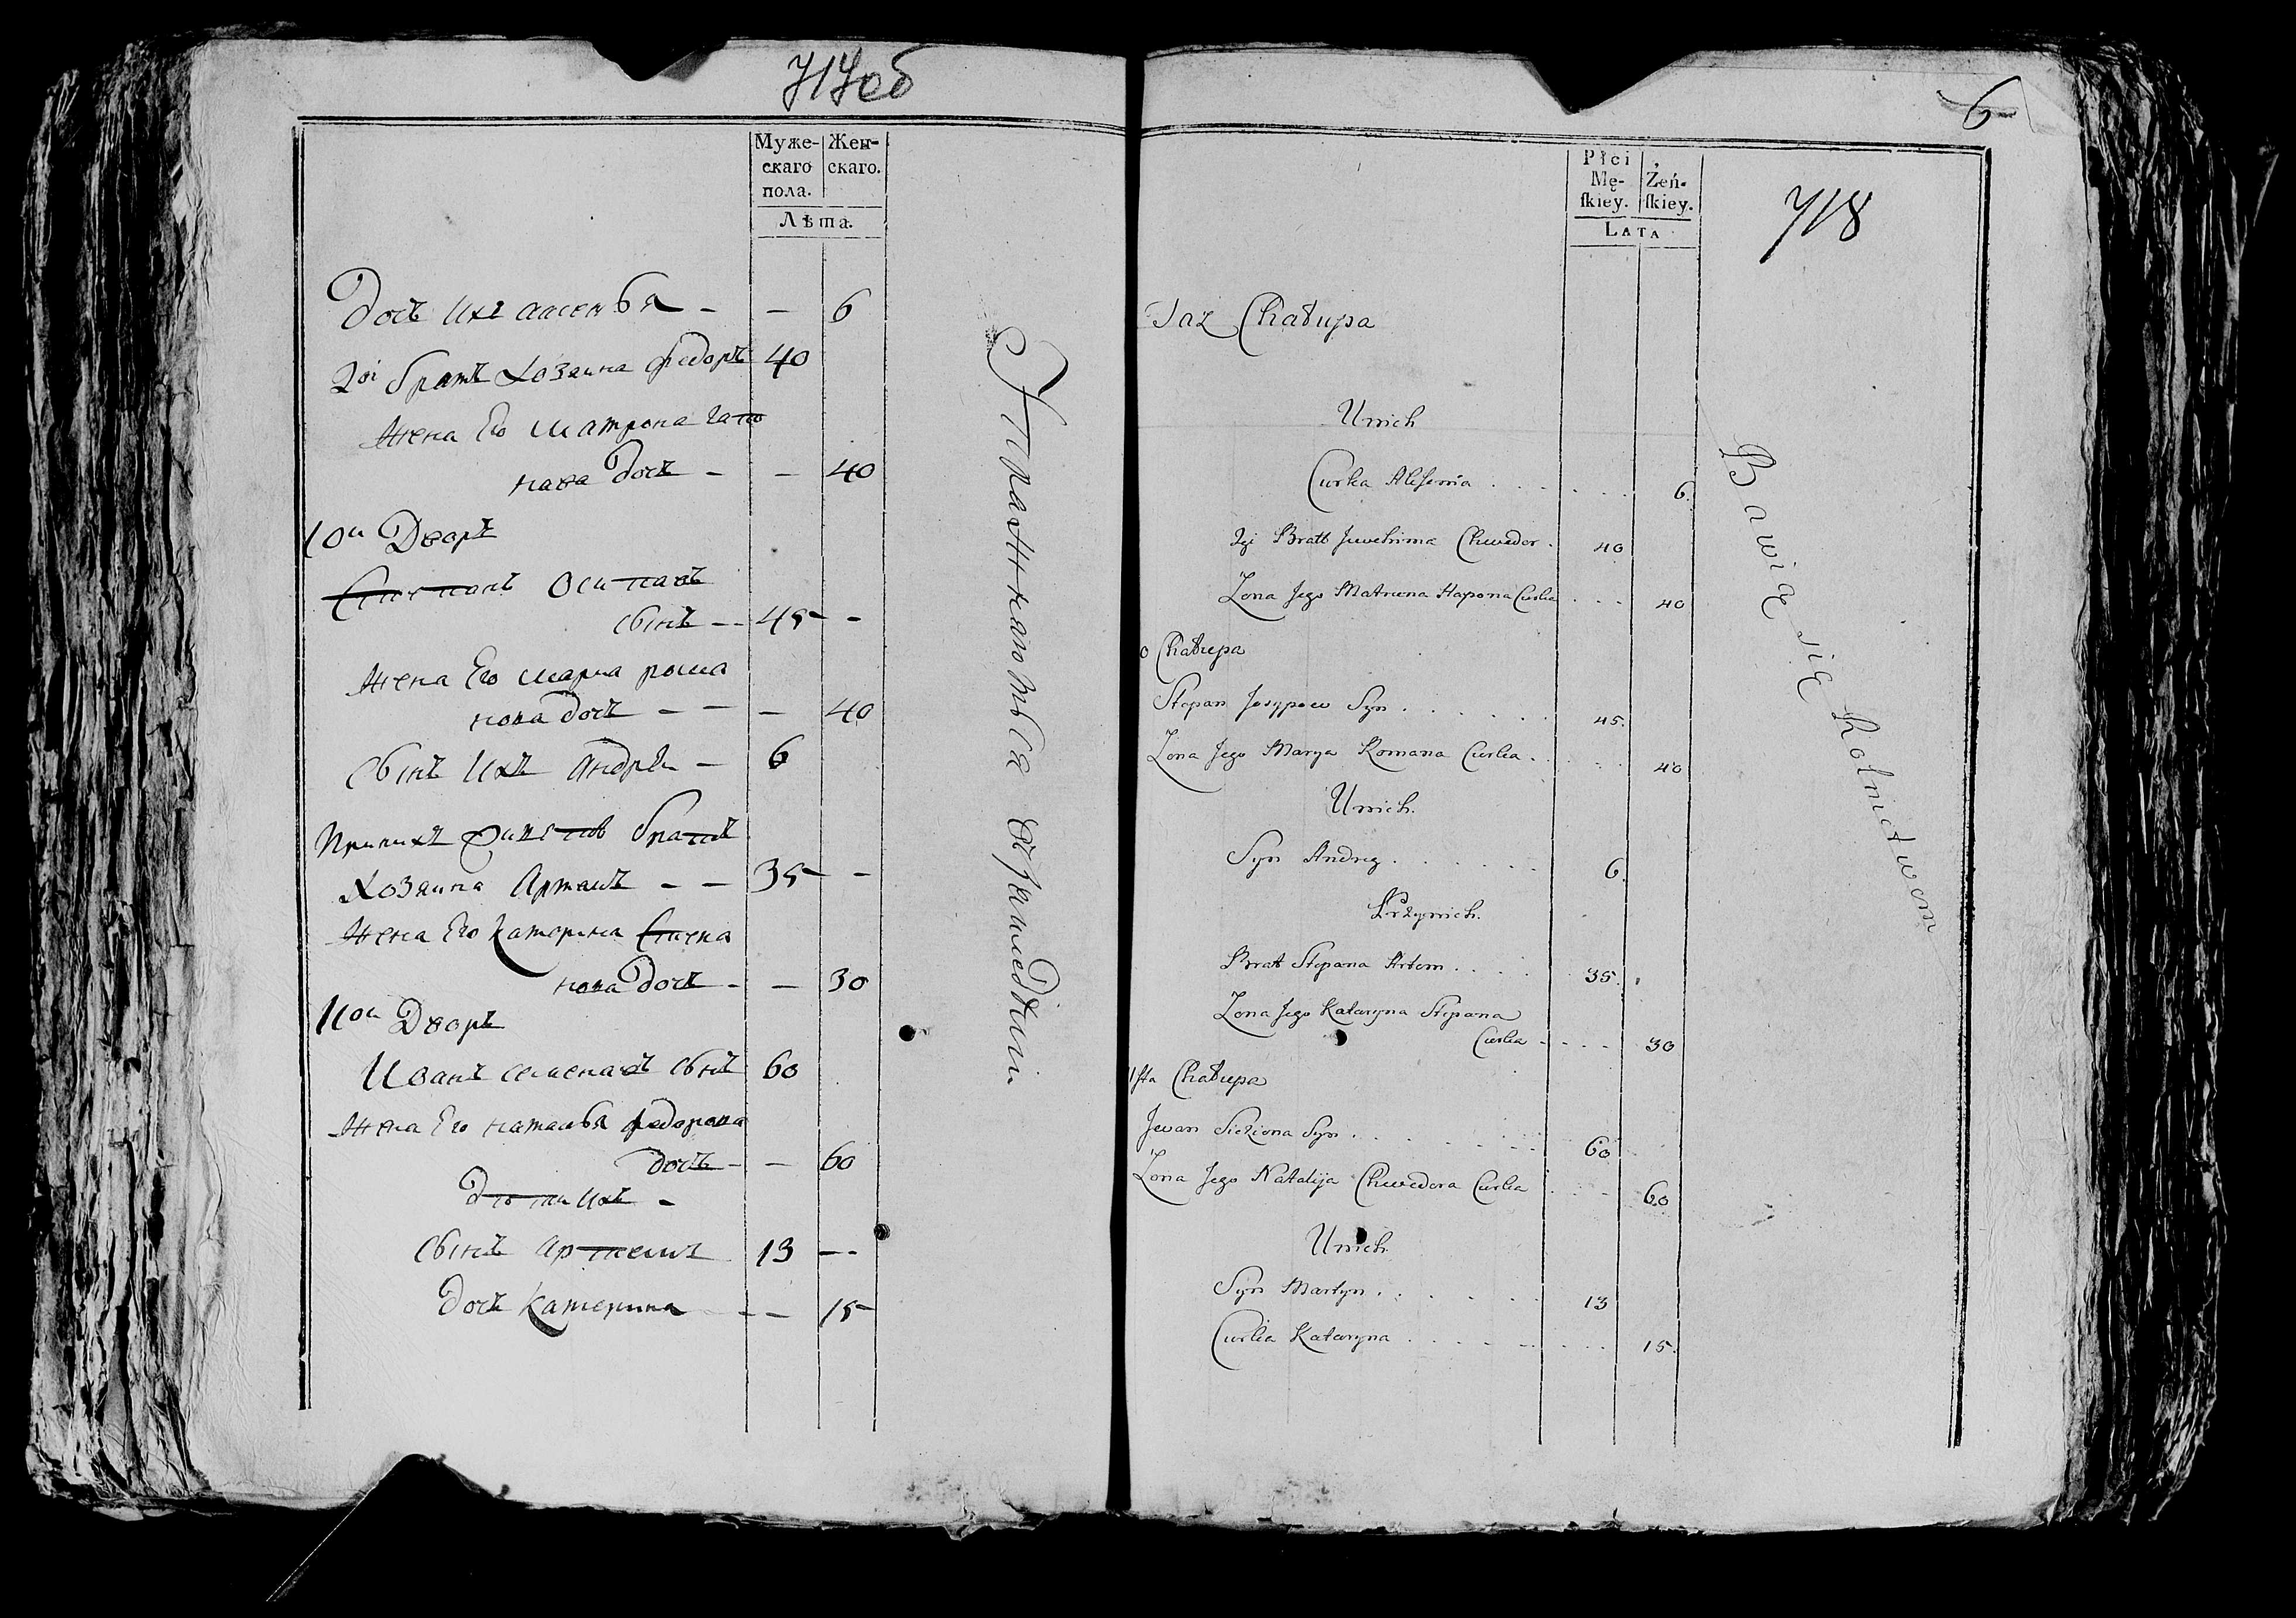 717об
Муже-
скаго
пола.
Жен-
скаго.
Лѣта.
Дочь Ихъ Аксенья - - 6
2оі братъ хозаина Федоръ 40
Жена Его Матрона Гапо
нова дочь - - 40
10и Дворъ
Степанъ Осиповъ
сынъ -- 45 -
Жена Его Марья рома
нова дочь - - - 40
сынъ Ихъ Андрей - 6
братъ
хозаина Артемъ - - 35 -
Жена Его Катерина Степа
нова дочь - - 30
11ои Дворъ
Иванъ семеновъ сынъ 60
Жена Его наталья федорова
дочь - - 60
Дети Ихъ -
сынъ Артемъ 13 --
дочь Катерина - - 15
Упражняютьса
6
718
Płci
Mę-
ſkiey.
Żeń-
ſkiey.
LATA
Taż Chałupa
Unich
Curka Alesenia . . . . . . 6.
2gi Bratt Juwchima Chwedor . 40
Zona Jego Matruna Hapona Curka . . . 40
o Chałupa
Stepan Josypow Syn . . . . . . 45.
Zona Jego Marya Romana Curka . . . . 40
Unich.
Syn Andrey . . . . . . 6.
Przynich.
Bratt Stepana Artem . . . . 35.
Zona Jego Kataryna Stepana
Curka . . . . 30
11sta Chałupa
Jwan Syn . . . . . . 60
Zona Jego Natalija Chwedora Curka . . . 60
Unich.
Syn Martyn . . . . . . 13
Curka Kataryna . . . . . . . . 15.
Bawią się Rolnictwem